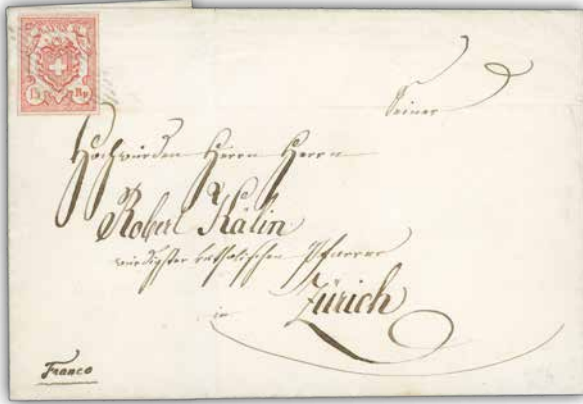 15 Rp.
Seiner
Hochwürden Herrn Herrn
Robert Kälin
würdigster katholischen Pfarrer
in Zürich
Franco